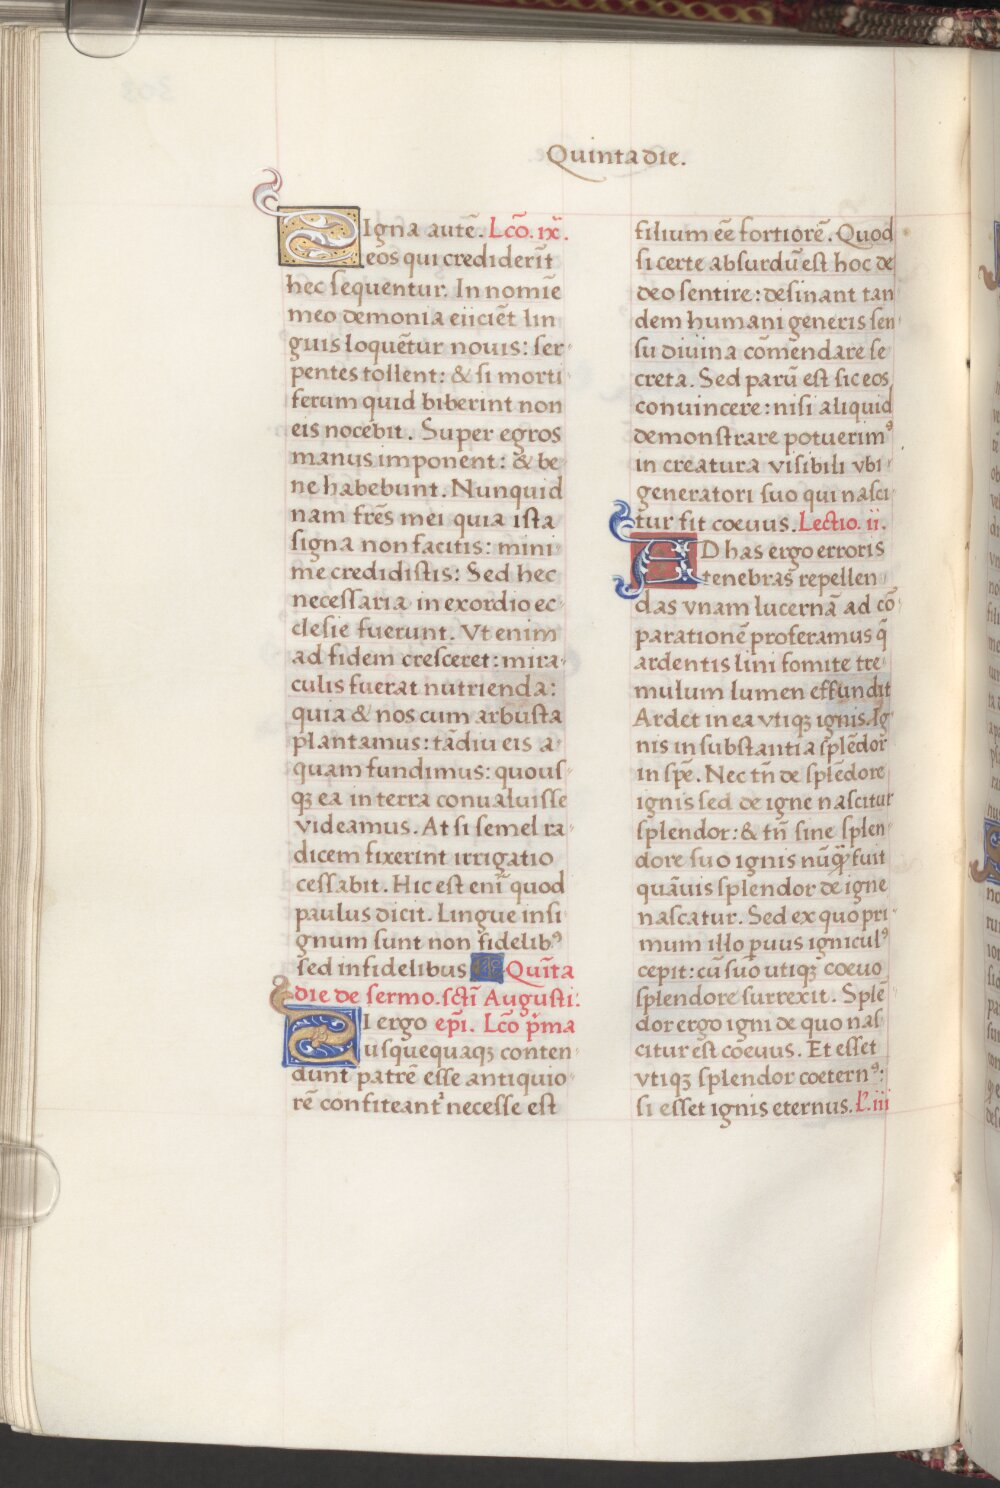 Quinta die.
Signa autē. Lcō. ix̄.
eos qui crediderīt
hec sequentur. In nomīe
meo demonia eiiciēt lin
guis loquētur nouis: ser-
pentes tollent: & si morti
ferum quid biberint non
eis nocebit. Super egros
manus imponent: & be
ne habebunt. Nunquid
nam frēs mei quia ista
signa non facitis: mini
me credidistis: Sed hec
necessaria in exordio ec
clesie fuerunt. Vt enim
ad fidem cresceret: mira-
culis fuerat nutrienda:
quia & nos cum arbusta
plantamus: tādiu eis a-
quam fundimus: quous-
qꝫ ea in terra conualuisse
videamus. At si semel ra-
dicem fixerint irrigatio
cessabit. Hic est enī quod
paulus dicit. Lingue insi
gnum sunt non fidelibꝰ
sed infidelibus Quīta
die de sermo. sctī Augusti:
SI ergo epī. Lcō p̄ma
usquequaqꝫ conten-
dunt patrē esse antiquio-
rē confiteant᷑ necesse est
filium eē fortiorē. Quod
si certe absurdū est hoc de
deo sentire: desinant tan
dem humani generis sen-
su diuina cōmendare se
creta. Sed parū est sic eos
conuincere: nisi aliquid
demonstrare potuerimꝰ
in creatura visibili vbi-
generatori suo qui nasci-
tur fit coeuus. Lectio. ii.
AD has ergo erroris
tenebras repellen
das vnam lucernā ad cō-
parationē proferamus q̄
ardentis lini fomite tre-
mulum lumen effundit
Ardet in ea vtiqꝫ ignis. Ig-
nis in substantia splēdor
in spē. Nec tn̄ de splēdore
ignis sed de igne nascitur
splendor: & tn̄ sine splen-
dore suo ignis nūꝙ̄ fuit
quāuis splendor de igne
nascatur. Sed ex quo pri-
mum illo puus igniculꝰ
cepit: cū suo utiqꝫ coeuo
splendore surrexit. Splē
dor ergo igni de quo nas-
citur est coeuus. Et esset
vtiqꝫ splendor coeternꝰ:
si esset ignis eternus. L̄. iii